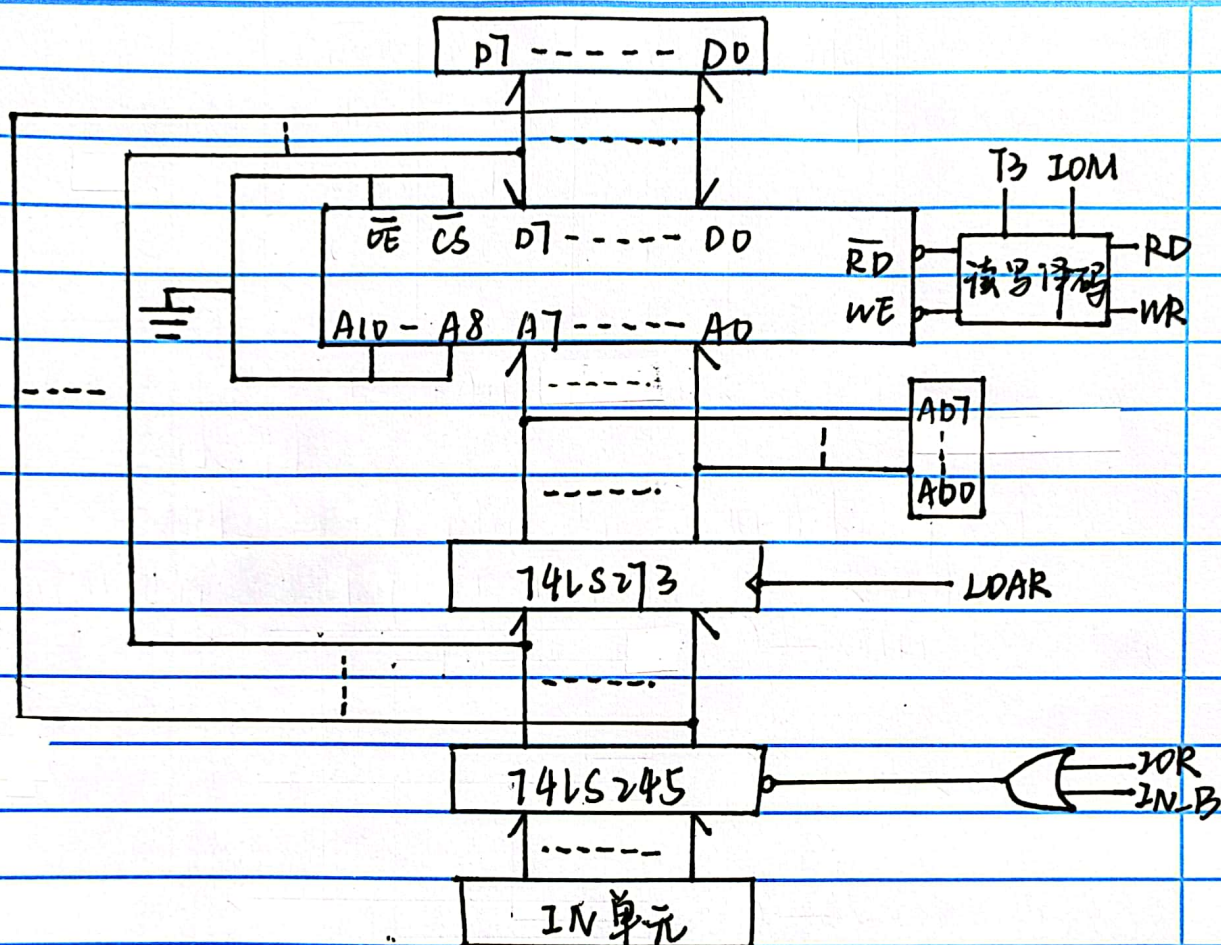 D7 ----- D0
T3 IOM
OE CS D7 ----- D0
RD
WE
读写译码
RD
WR
A10 - A8 A7 ----- A0
AD7
AD0
74LS273
LDAR
74LS245
IOR
IN_B
IN单元